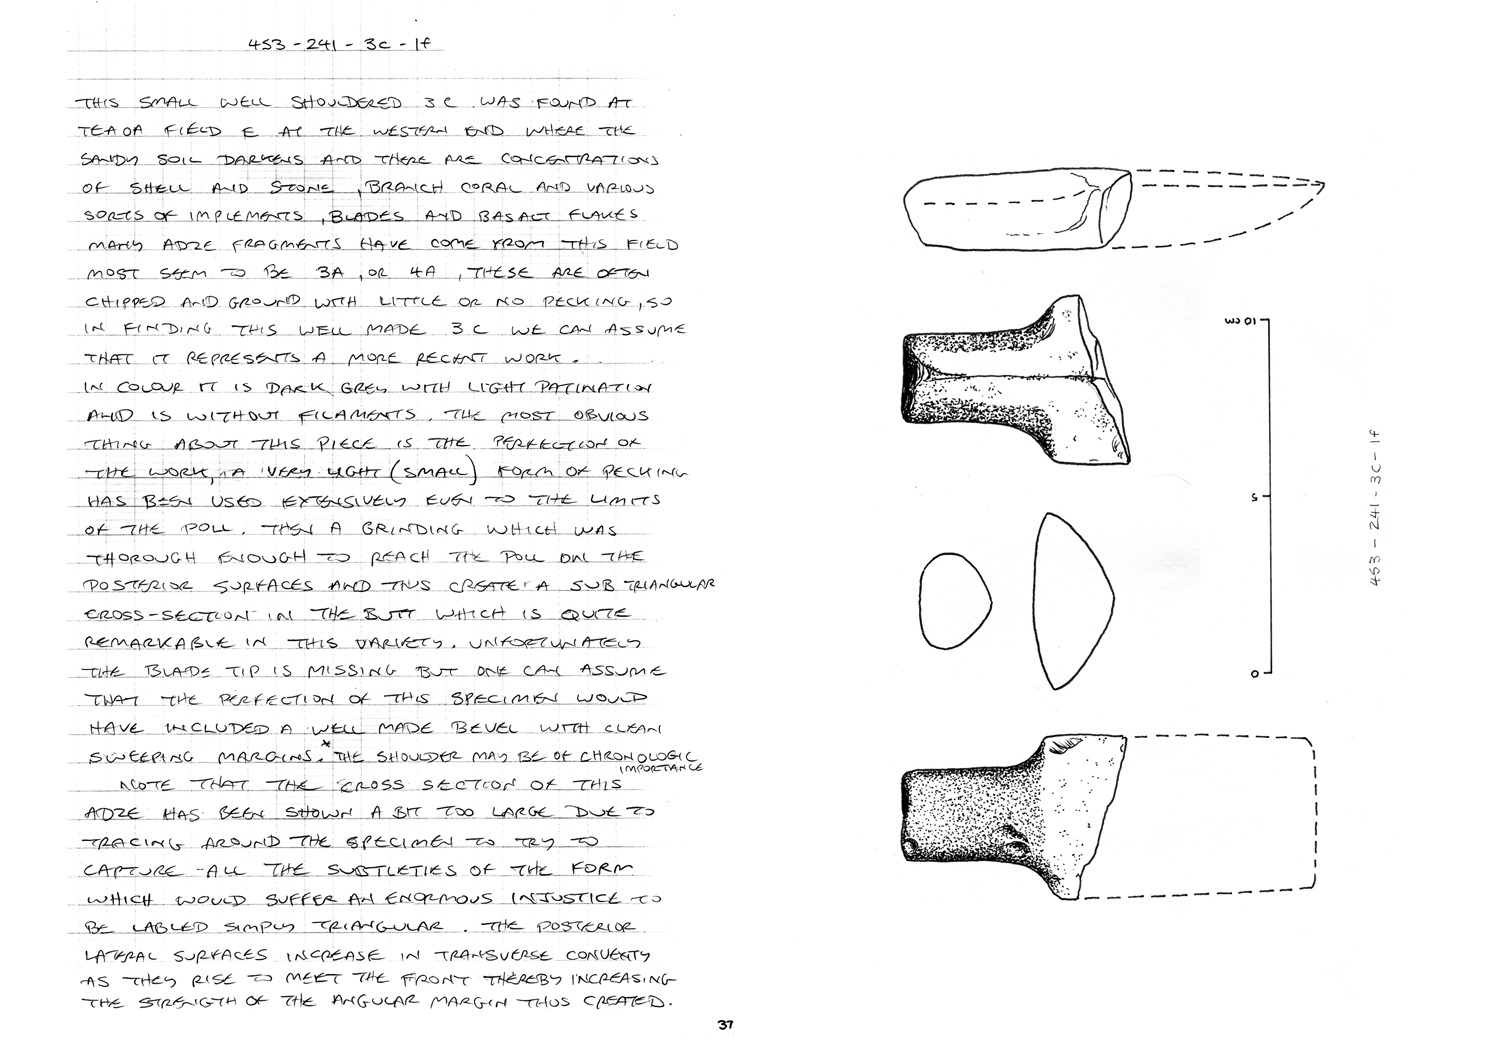 453-241-3C-1f
THIS SMALL WELL SHOULDERED 3C. WAS FOUND AT
TEAOA FIELD E AT THE WESTERN END WHERE THE
SANDY SOIL DARKENS AND THERE ARE CONCENTRATIONS
OF SHELL AND STONE, BRANCH CORAL AND VARIOUS
SORTS OF IMPLEMENTS, BLADES AND BASALT FLAKES
MANY ADZE FRAGMENTS HAVE COME FROM THIS FIELD
MOST SEEM TO BE 3A, OR 4A, THESE ARE OFTEN
CHIPPED AND GROUND WITH LITTLE OR NO PECKING, SO
IN FINDING THIS WELL MADE 3C WE CAN ASSUME
THAT IT REPRESENTS A MORE RECENT WORK.
IN COLOUR IT IS DARK GREY WITH LIGHT PATINATION
AND IS WITHOUT FILAMENTS. THE MOST OBVIOUS
THING ABOUT THIS PIECE IS THE PERFECTION OF
THE WORK, A VERY LIGHT (SMALL) FORM OF PECKING
HAS BEEN USED EXTENSIVELY EVEN TO THE LIMITS
OF THE POLL. THEN A GRINDING WHICH WAS
THOROUGH ENOUGH TO REACH THE POLL ON THE
POSTERIOR SURFACES AND THUS CREATE A SUB TRIANGULAR
CROSS-SECTION IN THE BUTT WHICH IS QUITE
REMARKABLE IN THIS VARIETY. UNFORTUNATELY
THE BLADE TIP IS MISSING BUT ONE CAN ASSUME
THAT THE PERFECTION OF THIS SPECIMEN WOULD
HAVE INCLUDED A WELL MADE BEVEL WITH CLEAN
SWEEPING MARGINS.* THE SHOULDER MAY BE OF CHRONOLOGIC
IMPORTANCE
NOTE THAT THE CROSS SECTION OF THIS
ADZE HAS BEEN SHOWN A BIT TOO LARGE DUE TO
TRACING AROUND THE SPECIMEN TO TRY TO
CAPTURE ALL THE SUBTLETIES OF THE FORM
WHICH WOULD SUFFER AN ENORMOUS INJUSTICE TO
BE LABLED SIMPLY TRIANGULAR. THE POSTERIOR
LATERAL SURFACES INCREASE IN TRANSVERSE CONVEXITY
AS THEY RISE TO MEET THE FRONT THEREBY INCREASING
THE STRENGTH OF THE ANGULAR MARGIN THUS CREATED.
10 CM
5
0
453-241-3C-1f
37